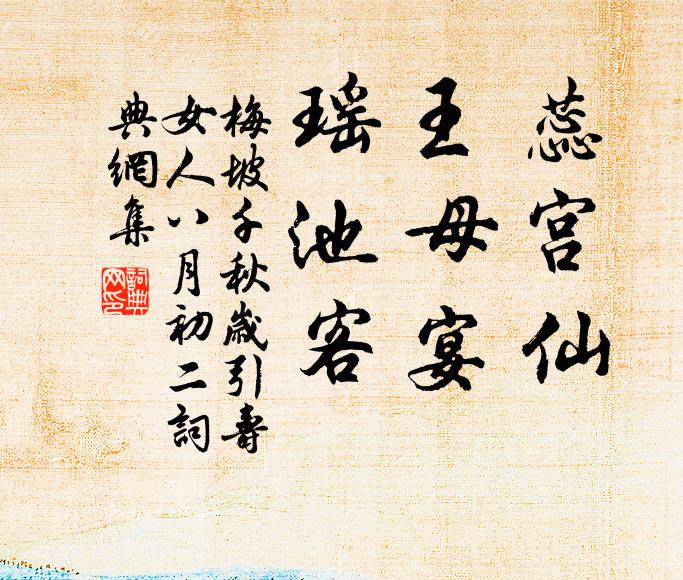 蕊宫仙
王母宴
瑶池客
梅坡千秋歲引壽
女人八月初二詞
典網集
詞典
网印